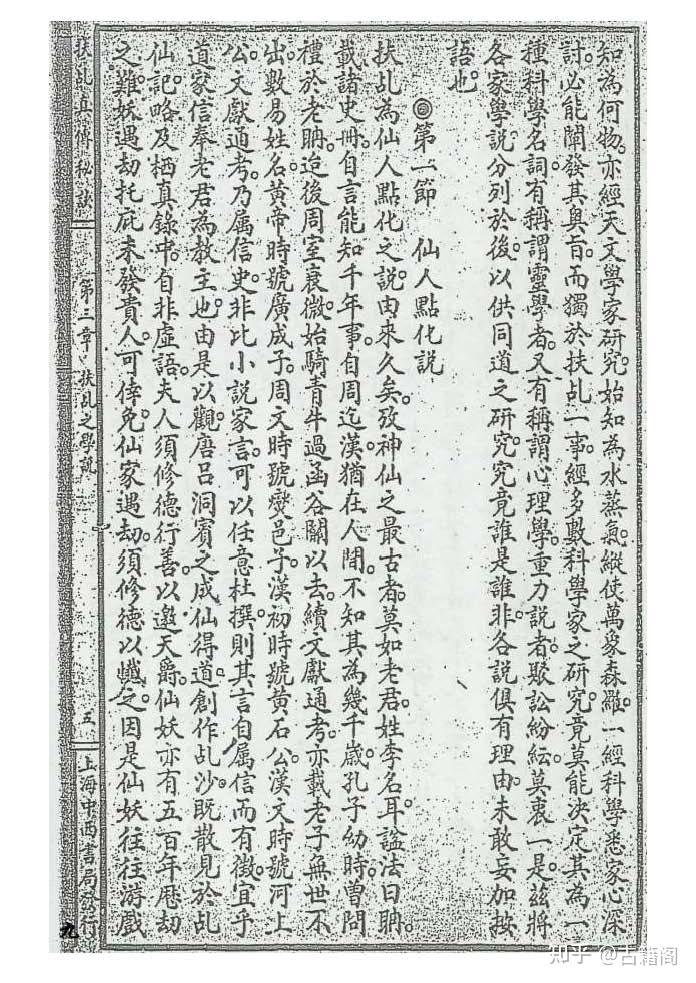 知為何物。亦經天文學家研究。始知為水蒸氣。縱使萬象森羅。一經科學悉家心深
討。必能闡發其奧旨。而獨於扶乩一事。經多數科學家之研究。竟莫能決定其為一
種科學名詞。有稱謂靈學者。又有稱謂心理學。重力説者。聚訟紛紜。莫衷一是。兹將
各家學說分列於後。以供同道之研究。究竟誰是誰非。各說俱有理由。未敢妄加按
語也。
◎第一節　仙人點化説
扶乩為仙人點化之説。由來久矣。攷神仙之最古者。莫如老君。姓李名耳。謚法曰聃。
載諸史冊。自言能知千年事。自周迄漢。猶在人間。不知其為幾千歲。孔子幼時。曾問
禮於老聃。迨後周室衰微。始騎青牛過函谷關以去。續文獻通考。亦載老子無世不
出。數易姓名。黄帝時號廣成子。周文時號燮邑子。漢初時號黄石公。漢文時號河上
公。文獻通考。乃屬信史。非比小説家言。可以任意杜撰。則其言自屬信而有徵。宜乎
道家信奉老君為教主也。由是以觀。唐呂洞賓之成仙得道。創作乩沙。既散見於乩
仙記略及栖真錄中。自非虛語。夫人須修德行善。以邀天爵。仙妖亦有五百年厯劫
之難。妖遇劫。托庇未發貴人。可倖免。仙家遇劫。須修德以懺之。因是仙妖往往游戲
扶乩真傳秘訣
第三章　扶乩之學說
五
上海中西書局發行
九
知乎 @古籍阁